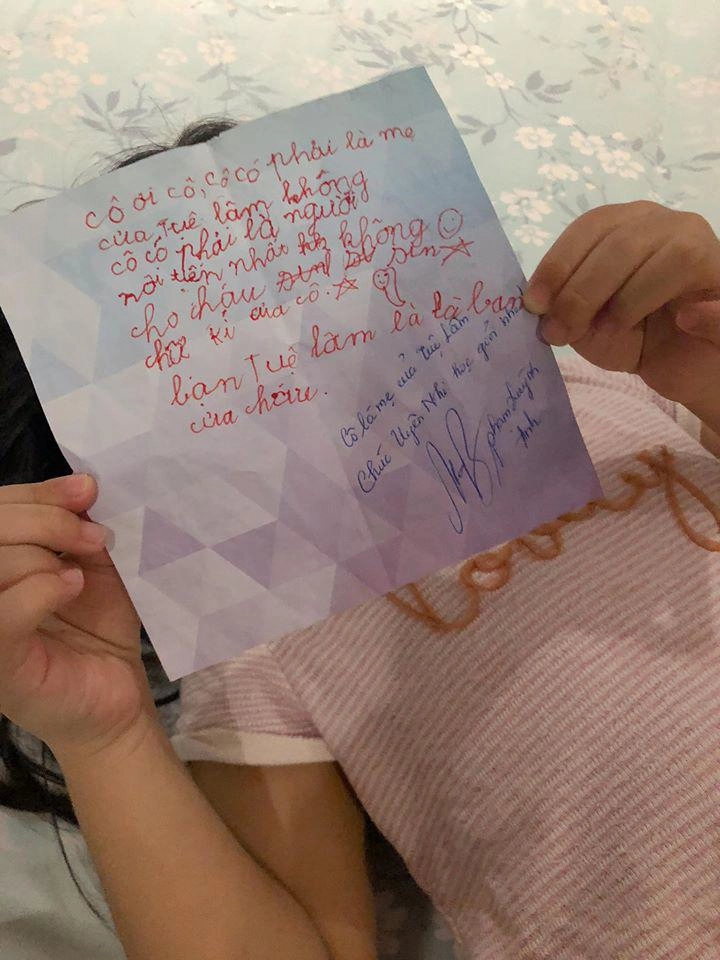 cô ơi cô, cô có phải là mẹ
của Tuệ lâm không
cô có phải là người
nôi tiến nhất không
cho cháu sin
chữ kí của cô.
bạn Tuệ lâm là là bạn
của cháu.
Cô là mẹ của Tuệ Lâm
Chúc Uyên Nhi học giỏi nhé!
phạm quỳnh
Anh
loving